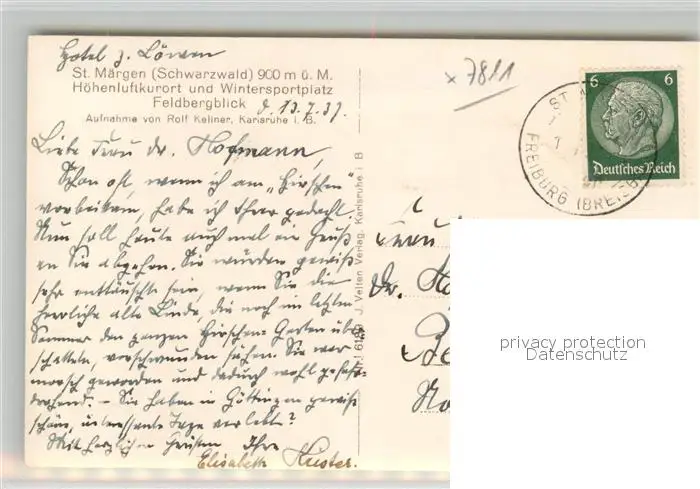 Hotel z. Löwen
St. Märgen (Schwarzwald) 900 m ü. M.
Höhenluftkurort und Wintersportplatz
Feldbergblick
d. 13.7.37.
Aufnahme von Rolf Kellner, Karlsruhe i. B.
Liebe Frau Dr. Hofmann,
Schon oft, wenn ich am „Hirschen"
vorbeikam, habe ich Ihrer gedacht.
Nun soll heute auch mal ein Gruß
an Sie abgehen. Sie würden gewiß
sehr enttäuscht sein, wenn Sie die
herrliche alte Linde, die noch im letzten
Sommer den ganzen Hirschen-Garten über-
schattete, verschwunden sähen. Sie war
morsch geworden und dadurch wohl gefahr-
drohend. - Sie haben in Göttingen gewiß
schöne, interessante Tage verlebt?
Mit herzlichen Grüßen Ihre
Elisabeth Huster.
J. Velten Verlag, Karlsruhe i B
x 7811
6 6
Deutsches Reich
ST. M
FREIBURG (BREISG
Frau
Dr. Ho
Be
privacy protection
Datenschutz